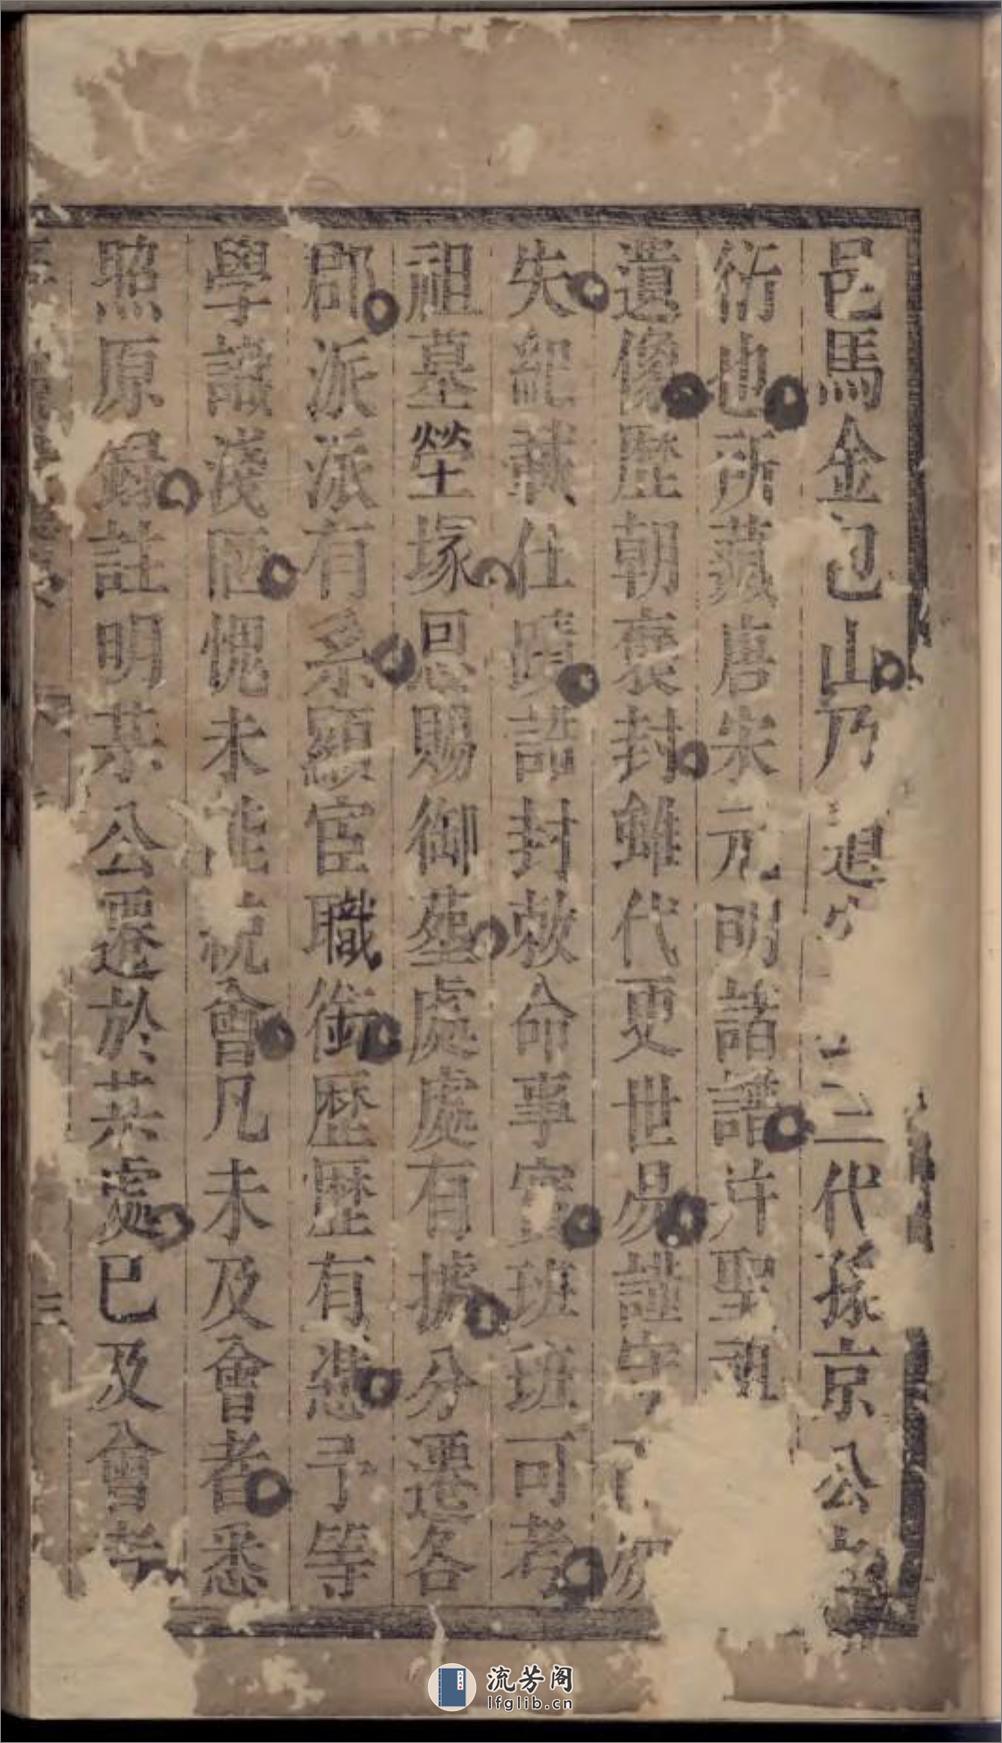 邑馬金包山乃退二代孫京公
衍也所藏唐宋元明諸譜并聖祖
遺像歷朝褒封雖代更世易謹守
失紀載仕蹟誥封敕命事實班班可考
祖墓塋塚恩賜御塟處處有據分遷各
郡派派有系顯宦職銜歷歷有憑予等
學識淺陋愧未能統會凡未及會者悉
照原錄註明某公遷於某處已及會者
三
流芳阁
lfglib.cn